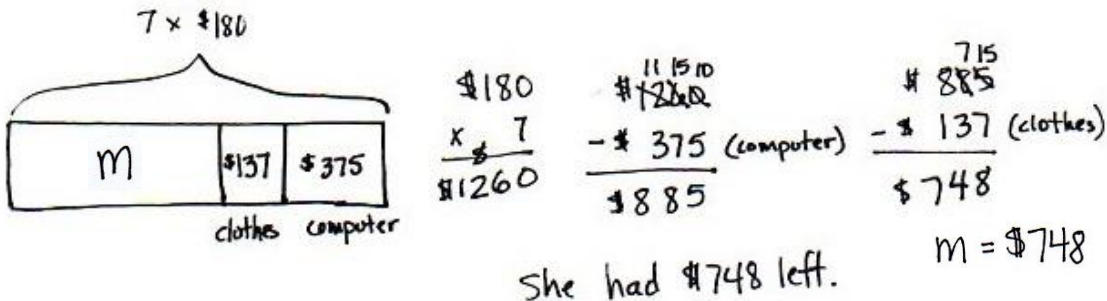 7 x $180
m $137 $375
clothes computer
$180
x 7
$1260
11 15 10
$1260
- $ 375 (computer)
$885
7 15
$ 885
- $ 137 (clothes)
$748
m = $748
She had $748 left.